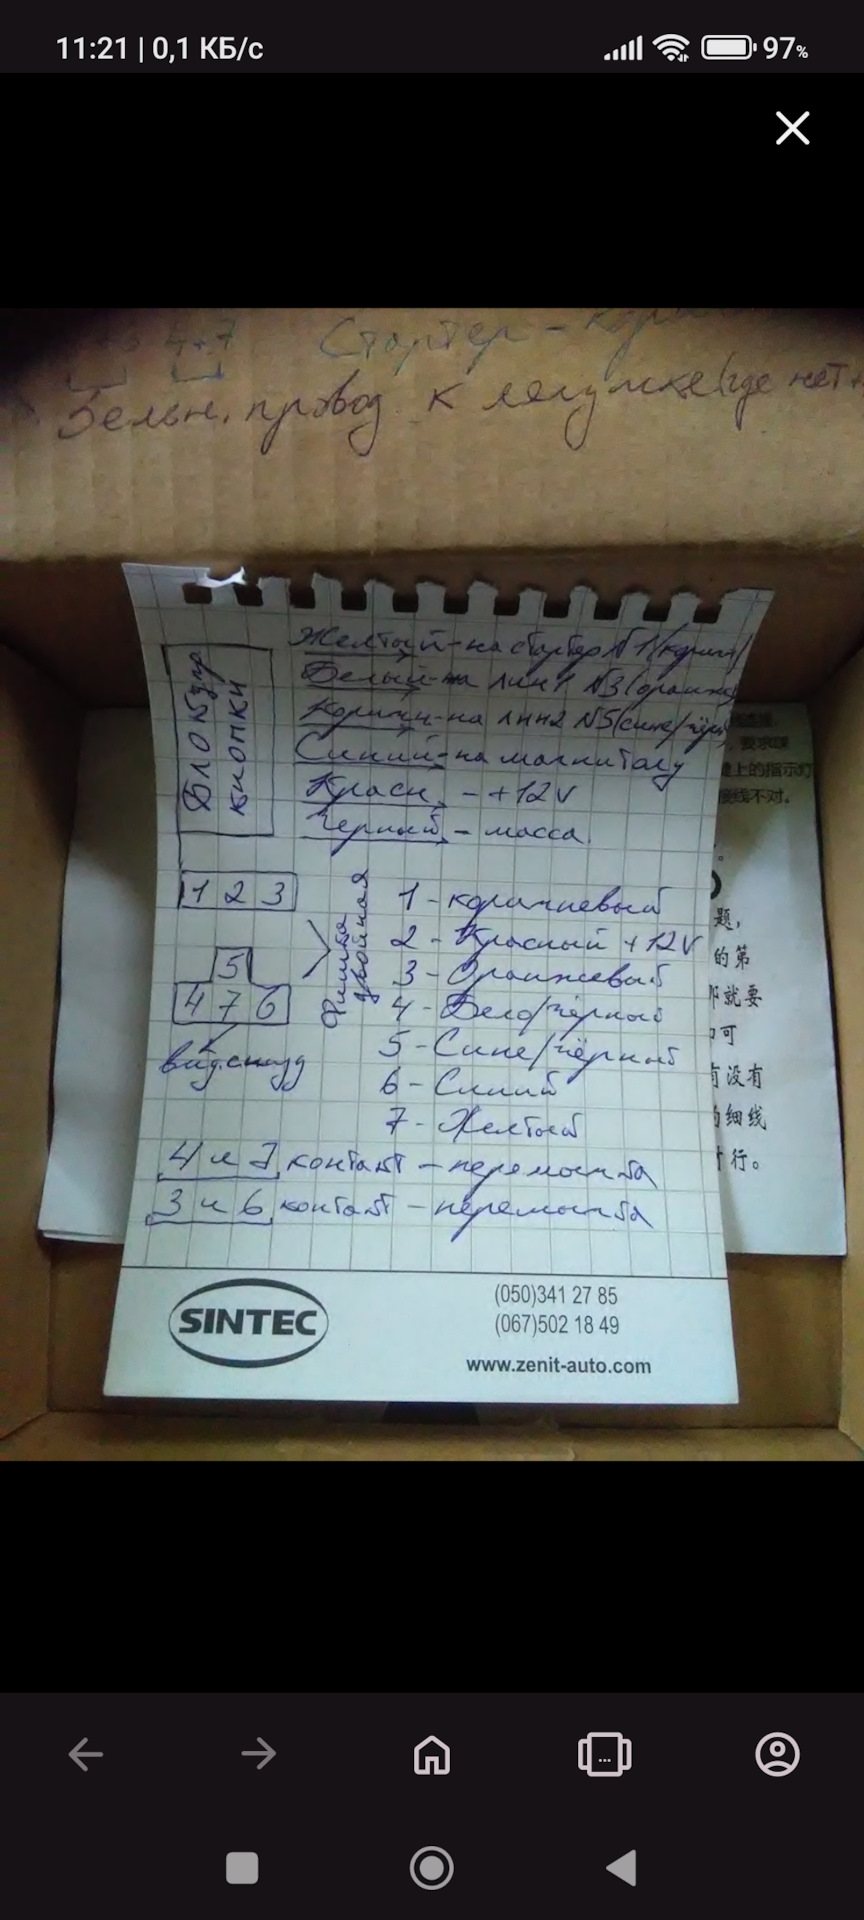 11:21 | 0,1 КБ/с
97%
4+7 Стартер -
Зелён. провод к лягушке (где нет
Блок упр.
кнопки
Желтый - на стартер №1 (коричн)
Белый - на лин1 №3 (оранж)
Коричн - на лин2 №5 (сине/чёрн)
Синий - на магнитолу
Красн. - +12V
Чёрный - масса.
1 2 3
5
4 7 6
вид снизу
Фишка
двойная
1 - коричневый
2 - Красный +12V
3 - Оранжевый
4 - Бело/чёрный
5 - Сине/чёрный
6 - Синий
7 - Желтый
4 и 7 контакт - перемычка
3 и 6 контакт - перемычка
要求
上的指示灯
接线不对。
题,
的第
就要
可
有没有
的细线
行。
SINTEC
(050)341 27 85
(067)502 18 49
www.zenit-auto.com